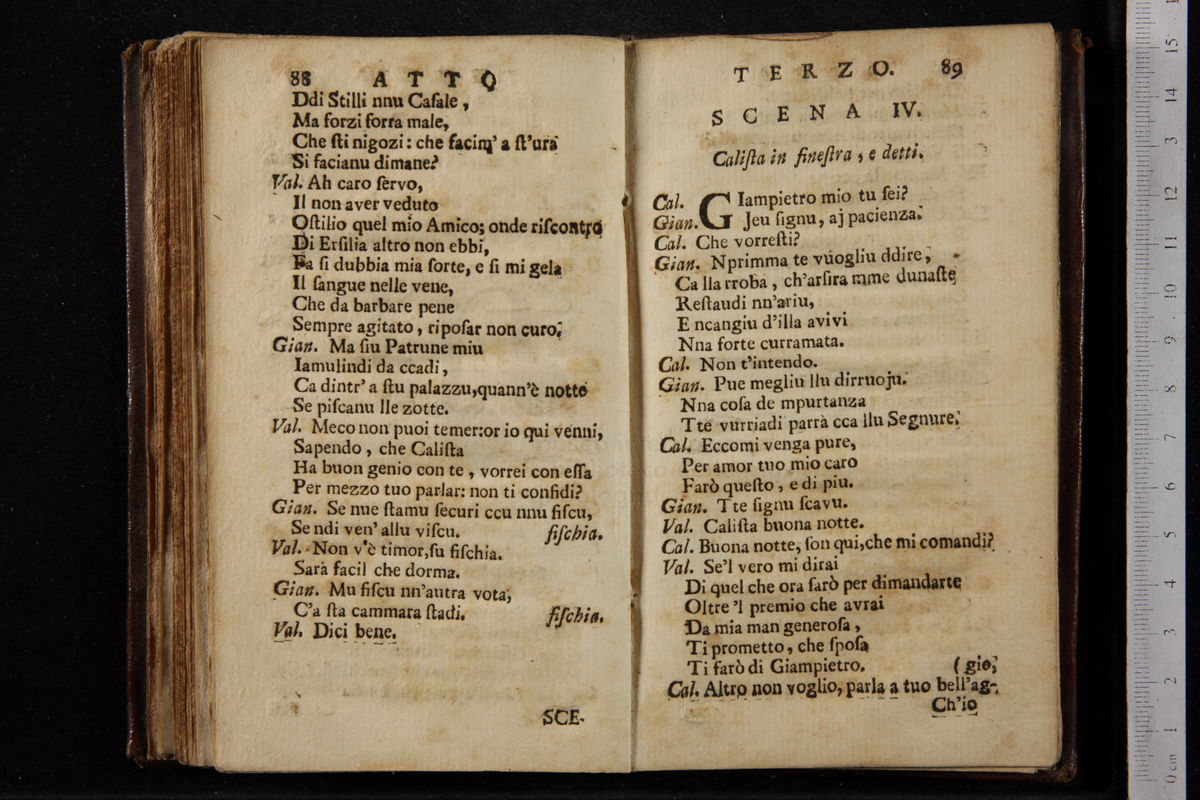 88 ATTO
Ddi Stilli nnu Caſale ,
Ma forzi forra male,
Che ſti nigozi: che facim' a ſt'ura
Si facianu dimane?
Val. Ah caro ſervo,
Il non aver veduto
Oſtilio quel mio Amico; onde riſcontro
Di Erſilia altro non ebbi,
Fa ſi dubbia mia ſorte, e ſi mi gela
Il ſangue nelle vene,
Che da barbare pene
Sempre agitato, ripoſar non curo.
Gian. Ma ſiu Patrune miu
Iamulindi da ccadi,
Ca dintr' a ſtu palazzu,quann'è notte
Se piſcanu lle zotte.
Val. Meco non puoi temer:or io qui venni,
Sapendo, che Caliſta
Ha buon genio con te, vorrei con eſſa
Per mezzo tuo parlar: non ti confidi?
Gian. Se nue ſtamu ſecuri ccu nnu fiſcu,
Se ndi ven' allu viſcu. fiſchia.
Val. Non v'è timor,ſu fiſchia.
Sarà facil che dorma.
Gian. Mu fiſcu nn'autra vota,
C'a ſta cammara ſtadi. fiſchia.
Val. Dici bene.
SCE-
TERZO. 89
SCENA IV.
Caliſta in fineſtra, e detti.
Cal. GIampietro mio tu ſei?
Gian. Jeu ſignu, aj pacienza.
Cal. Che vorreſti?
Gian. Nprimma te vuogliu ddire,
Ca lla rroba, ch'arſira mme dunaſte
Reſtaudi nn'ariu,
E ncangiu d'illa avivi
Nna forte curramata.
Cal. Non t'intendo.
Gian. Pue megliu llu dirruoju.
Nna coſa de mpurtanza
Tte vurriadi parrà cca llu Segnure.
Cal. Eccomi venga pure,
Per amor tuo mio caro
Farò queſto, e di piu.
Gian. Tte ſignu ſcavu.
Val. Caliſta buona notte.
Cal. Buona notte, ſon qui,che mi comandi?
Val. Se'l vero mi dirai
Di quel che ora farò per dimandarte
Oltre 'l premio che avrai
Da mia man generoſa,
Ti prometto, che ſpoſa
Ti farò di Giampietro. (gio,
Cal. Altro non voglio, parla a tuo bell'ag-
Ch'io
0 cm 1 2 3 4 5 6 7 8 9 10 11 12 13 14 15